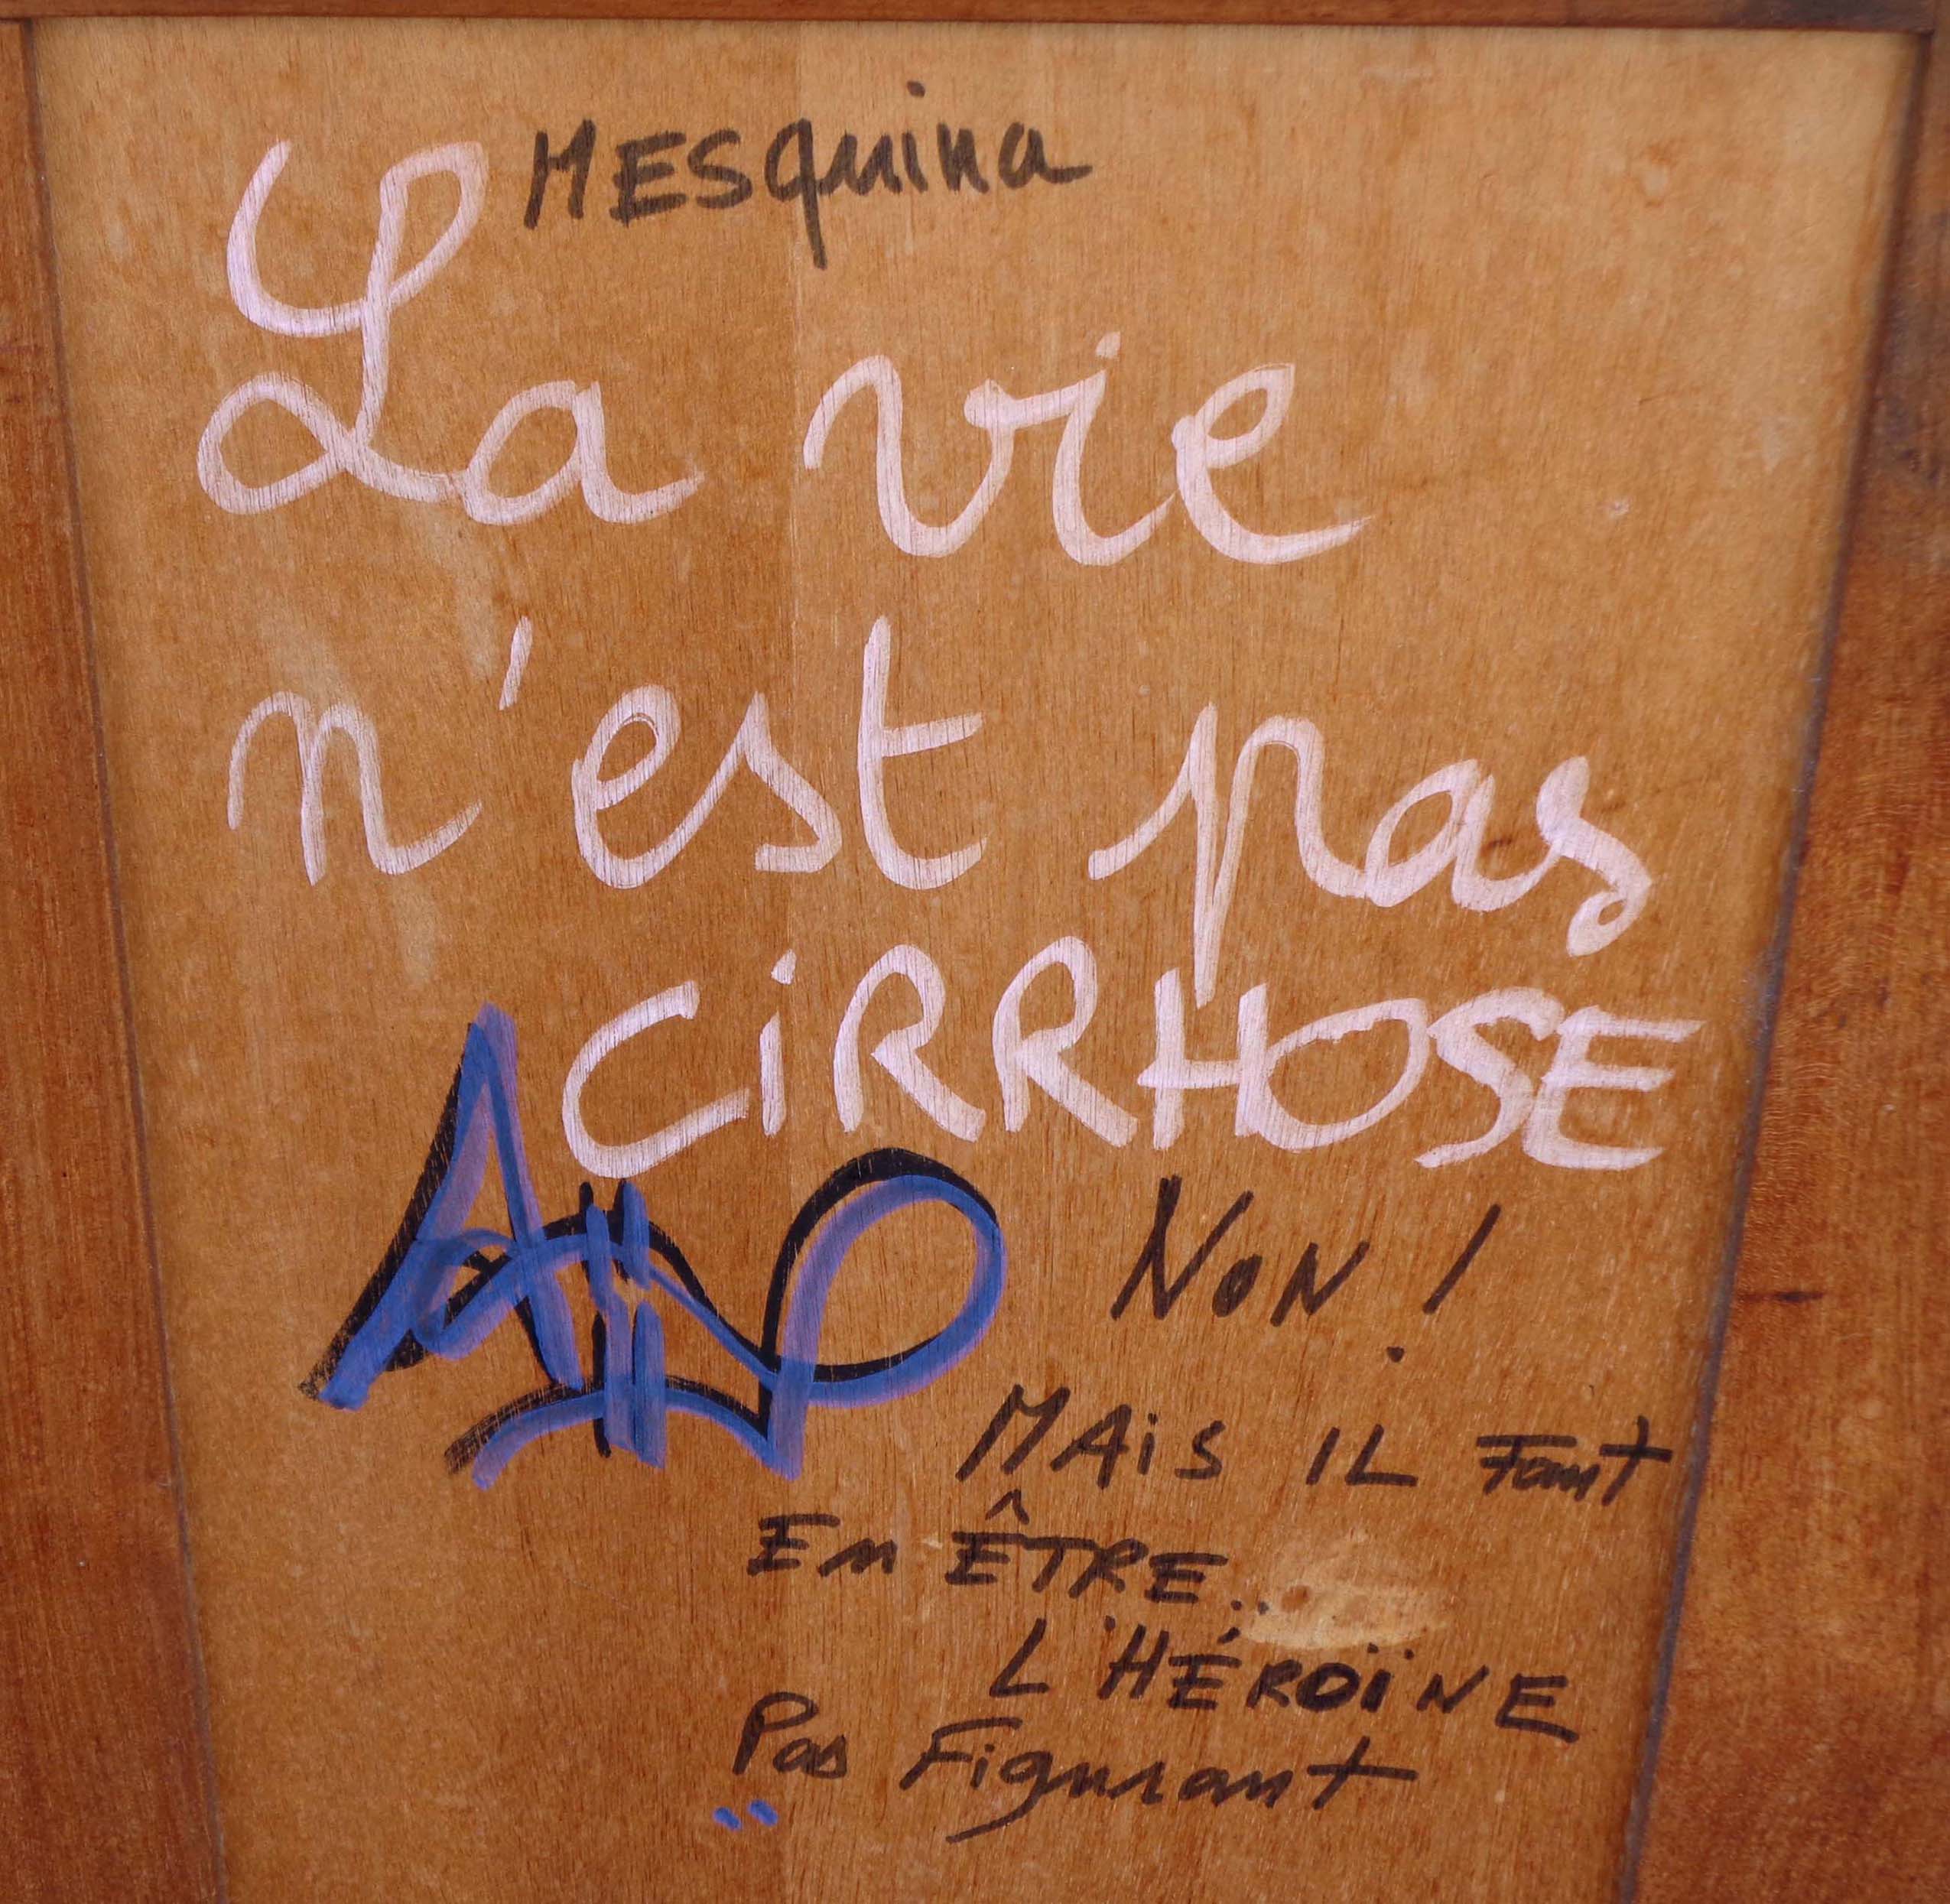 MESquina
La vie
n'est pas
CiRRHOSE
NON !
MAiS IL Faut
En ÊTRE..
L'HÉROÏNE
Pas Figurant